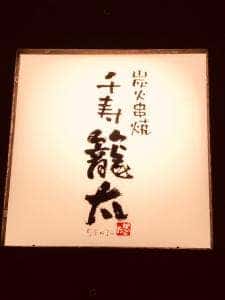 炭火串焼
千寿籠太